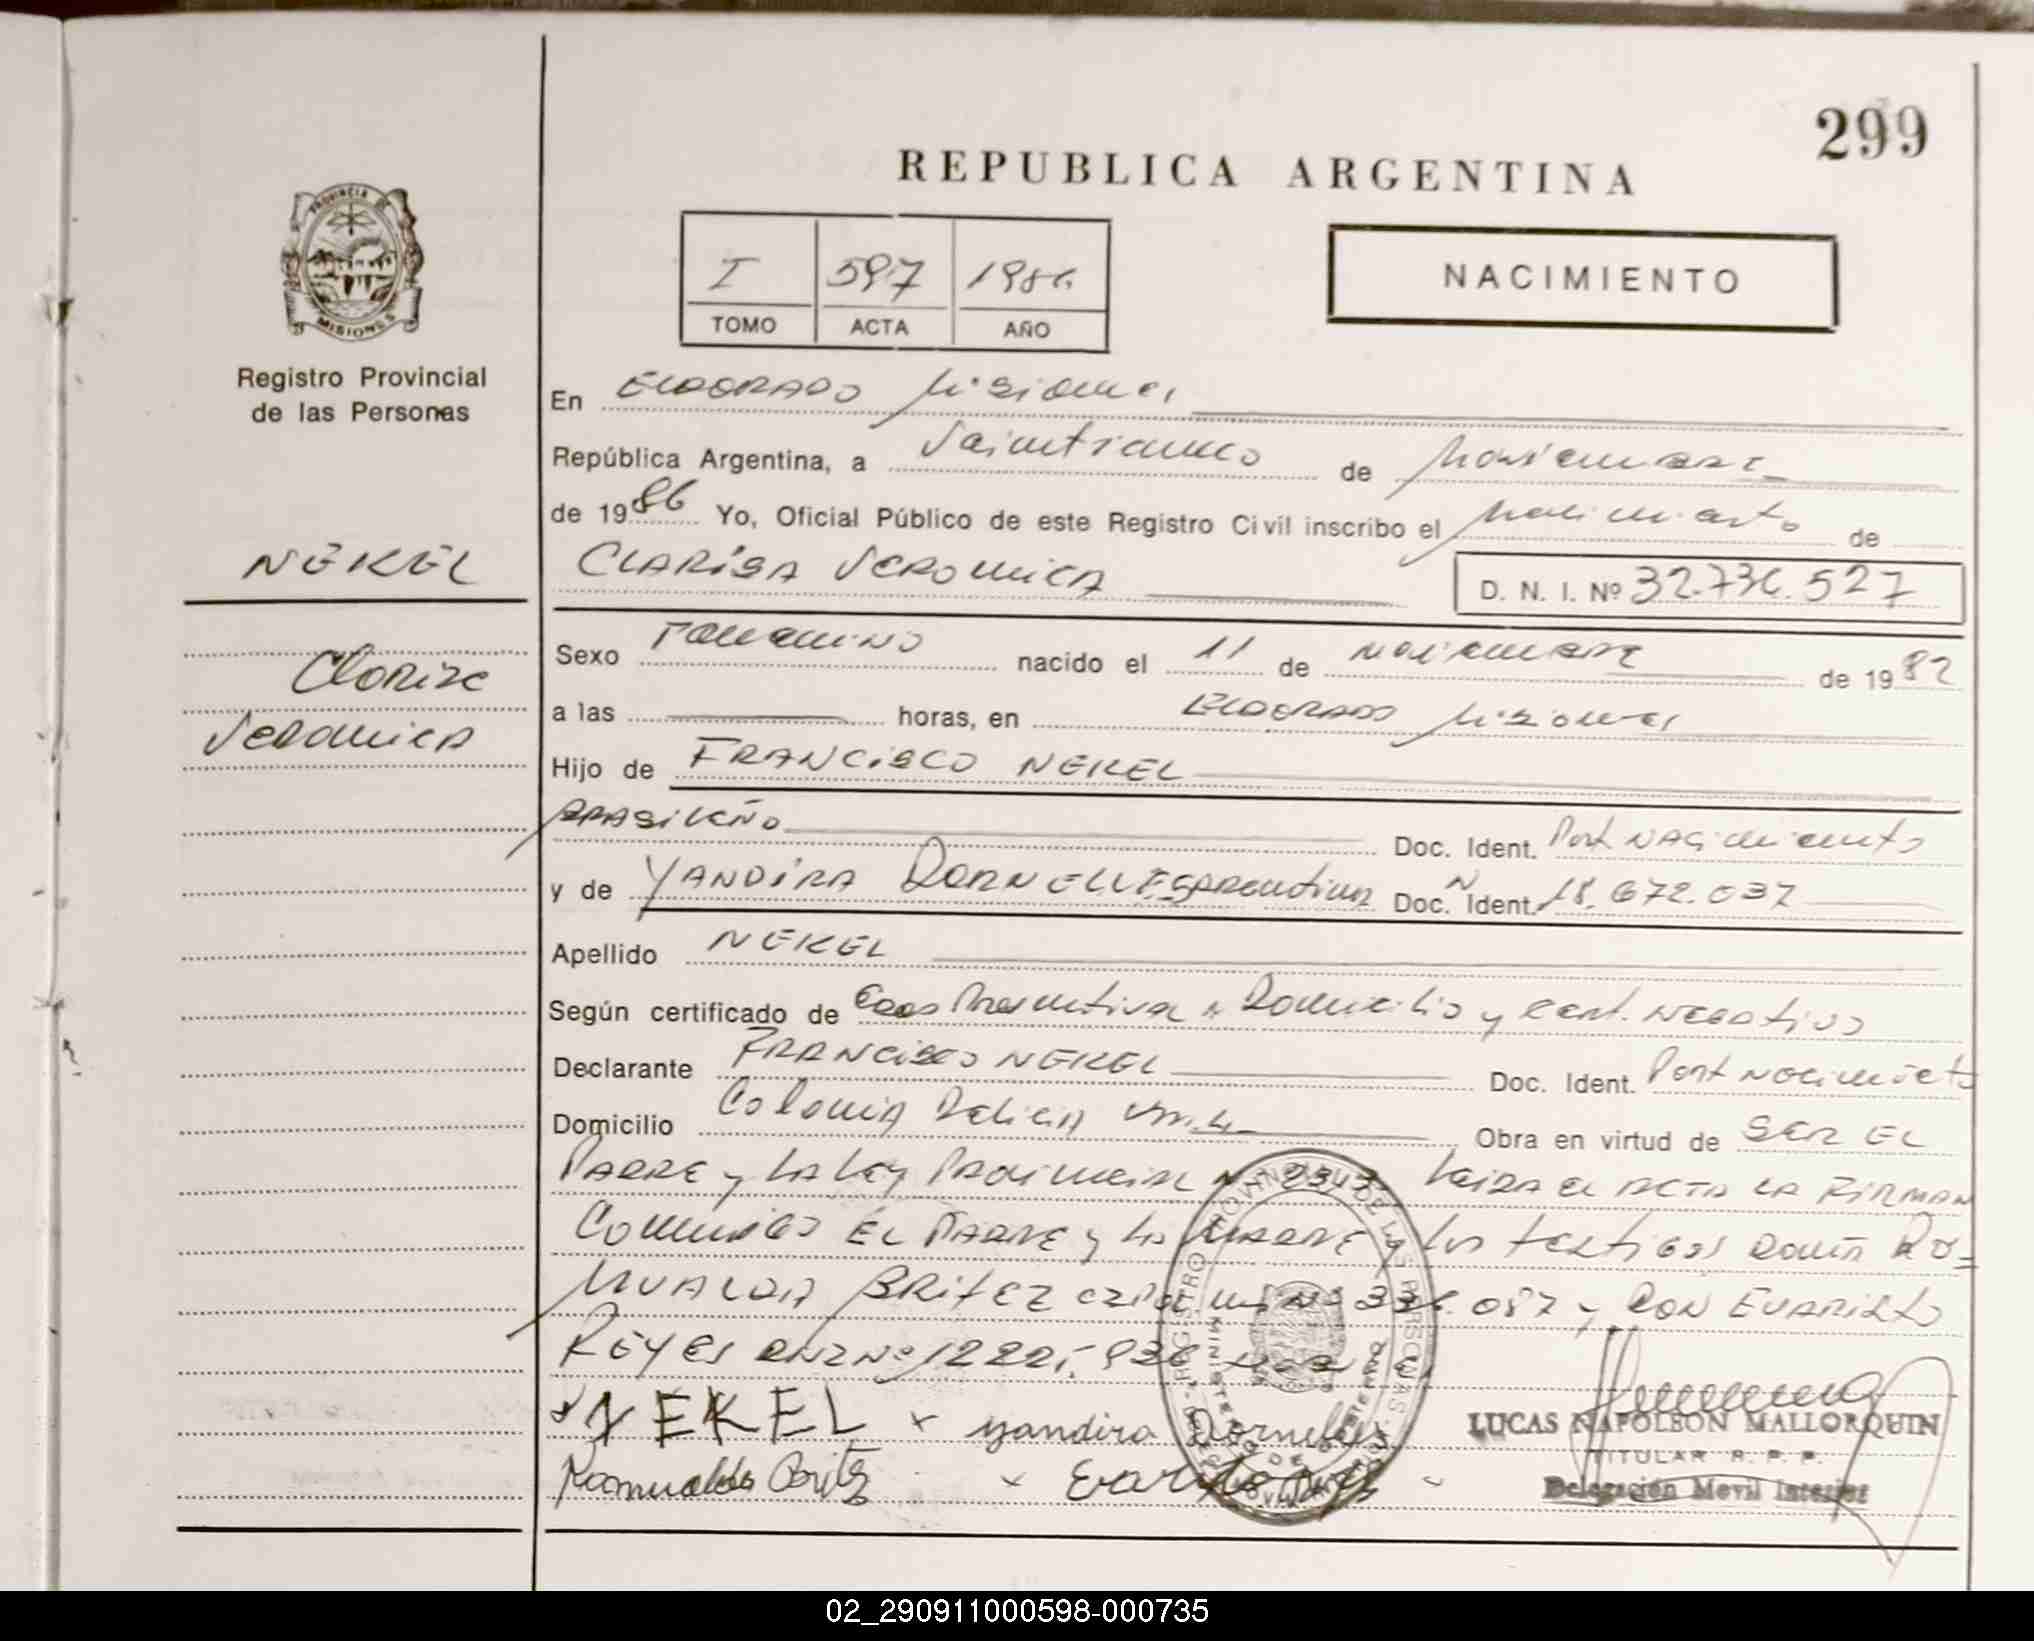 299
REPUBLICA ARGENTINA
PROVINCIA DE
MISIONES
Registro Provincial
de las Personas
I 597 1986
TOMO ACTA AÑO
NACIMIENTO
En ELDORADO Misiones
República Argentina, a Veinticinco de Noviembre
de 1986 Yo, Oficial Público de este Registro Civil inscribo el Nacimiento de
NEKEL
CLARISA VERONICA
D. N. I. Nº 32.736.527
Clarisa
Veronica
Sexo FEMENINO nacido el 11 de Noviembre de 1982
a las horas, en ELDORADO Misiones
Hijo de FRANCISCO NEKEL
BRASILEÑO Doc. Ident. Part NACimiento
y de YANDIRA DORNELLES Argentina Doc. Ident. N 18.672.037
Apellido NEKEL
Según certificado de Presuntiva Domicilio y Cert. Negativo
Declarante FRANCISCO NEKEL Doc. Ident. Part Nacimiento
Domicilio Colonia Delicia Obra en virtud de SER EL
PADRE y LA Ley Provincial Nº 2343 Leida el ACTA LA FIRMAN
Conmigo EL PADRE y LA MADRE y los testigos Doña RO-
MUALDA BRITEZ 087 y DON EVARISTO
REYES DNI Nº
NEKEL x yandira Dornelles
Romualda Britez x
LUCAS NAPOLEON MALLORQUIN
TITULAR R. P. P.
Delegación Movil Interior
02_290911000598-000735